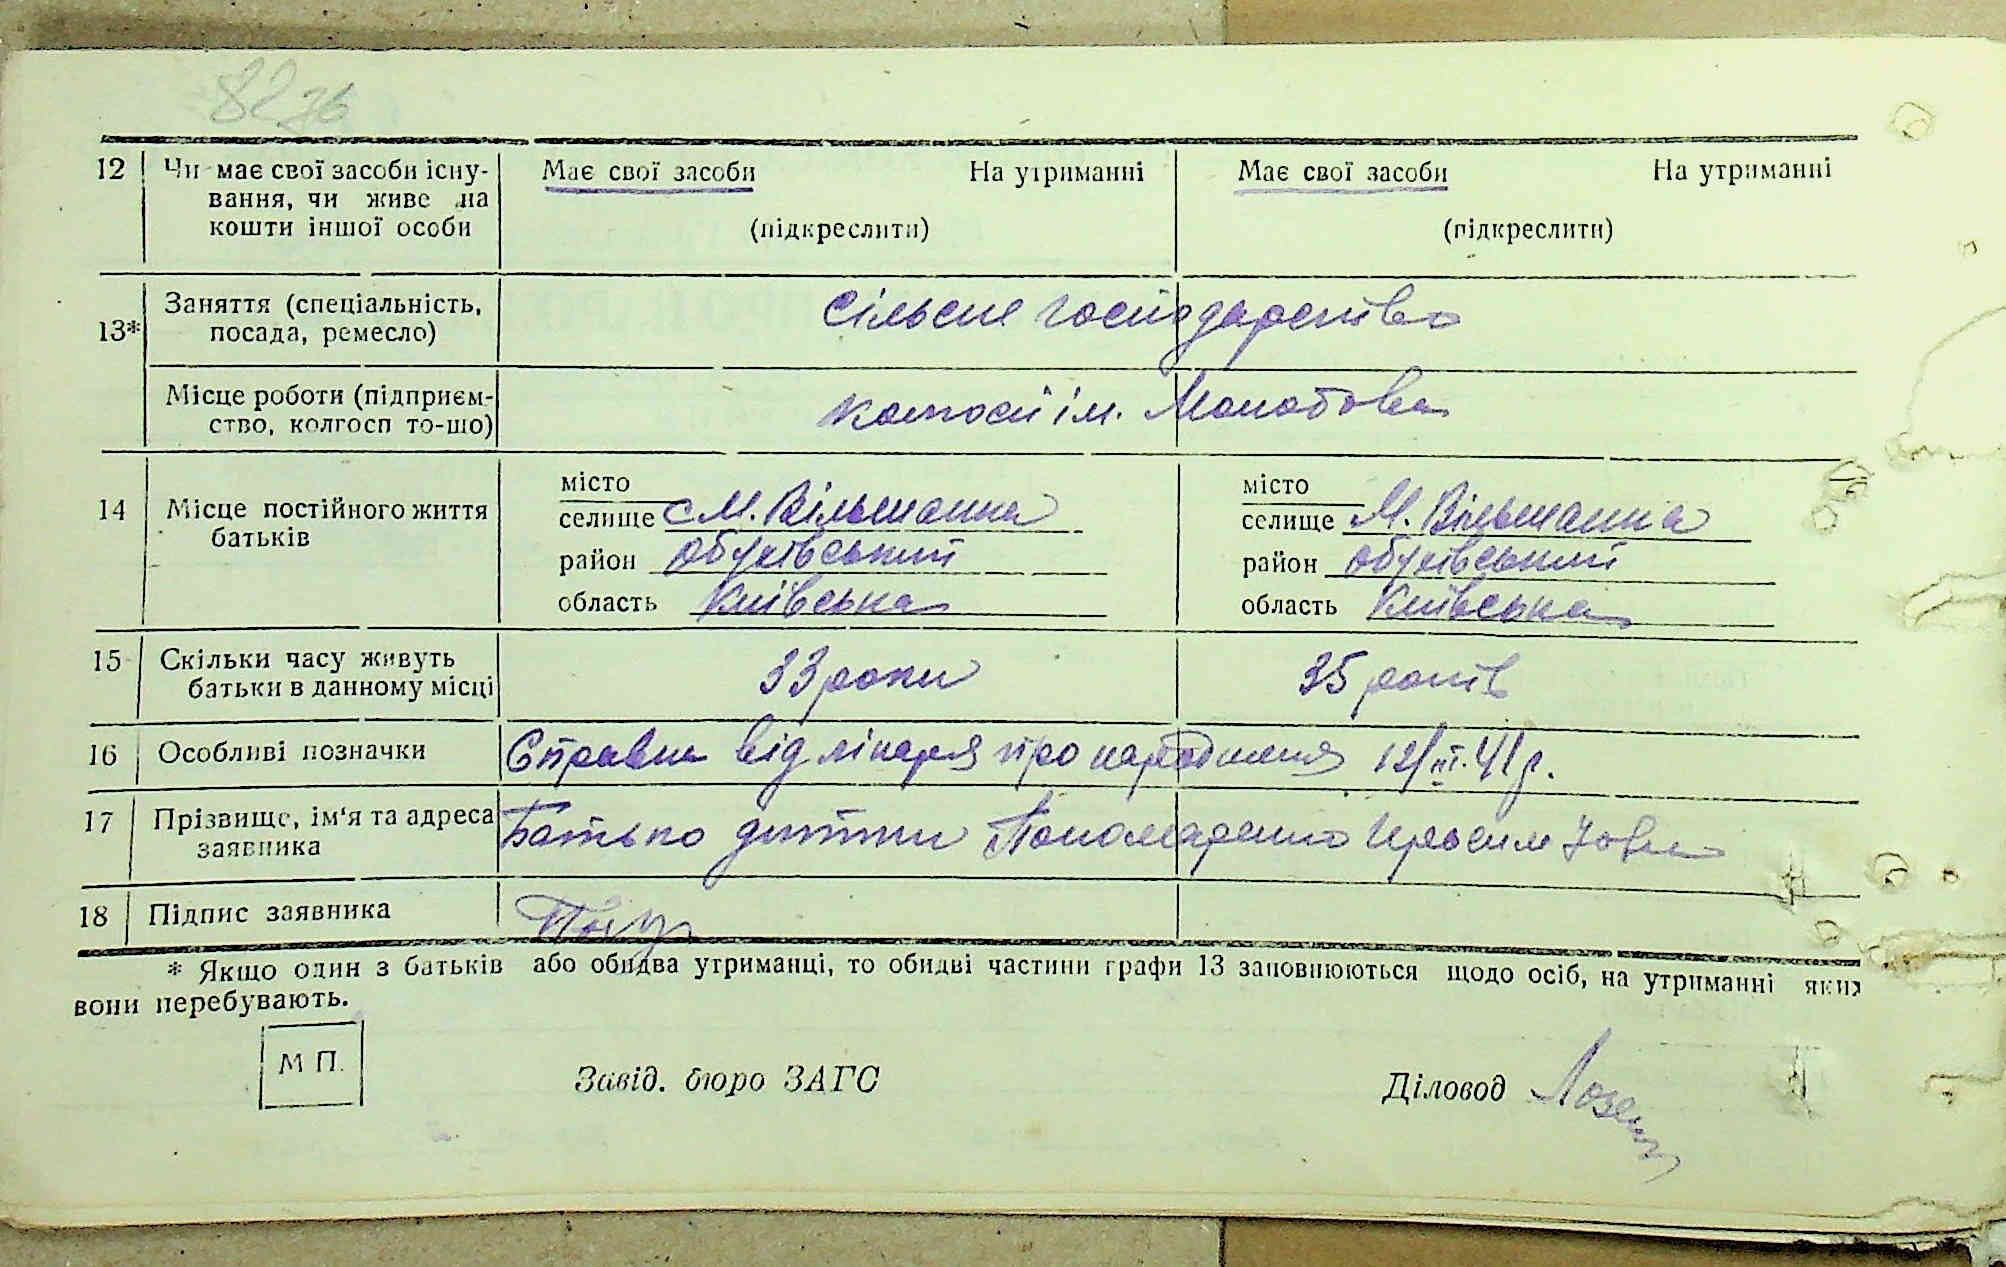 82зв
12 Чи має свої засоби існу-
вання, чи живе на
кошти іншої особи
Має свої засоби На утриманні
(підкреслити)
Має свої засоби На утриманні
(підкреслити)
13* Заняття (спеціальність,
посада, ремесло)
Сільське господарство
Місце роботи (підприєм-
ство, колгосп то-що)
колгосп ім. Молотова
14 Місце постійного життя
батьків
місто
селище с М. Вільшанка
район Обухівський
область Київська
місто
селище М. Вільшанка
район Обухівський
область Київська
15 Скільки часу живуть
батьки в данному місці
33 роки
35 років
16 Особливі позначки
Справка від лікаря про народження 12/III.41 р.
17 Прізвище, ім'я та адреса
заявника
Батько дитини Пономаренко Герасим
18 Підпис заявника
* Якщо один з батьків або обидва утриманці, то обидві частини графи 13 заповнюються щодо осіб, на утриманні яких
вони перебувають.
М П.
Завід. бюро ЗАГС
Діловод